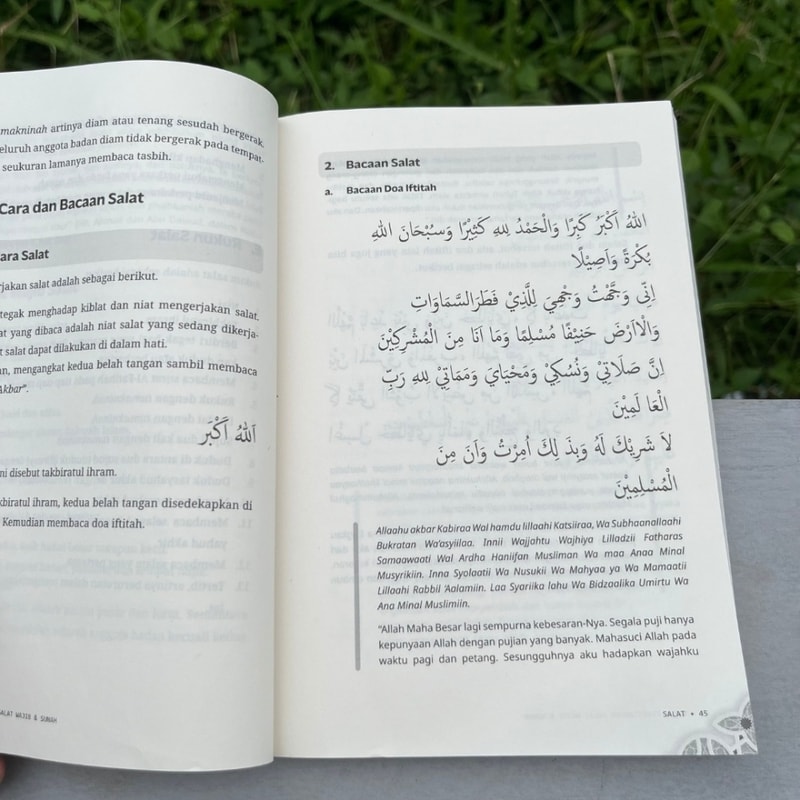 makninah artinya diam atau tenang sesudah bergerak.
eluruh anggota badan diam tidak bergerak pada tempat-
seukuran lamanya membaca tasbih.
Cara dan Bacaan Salat
ara Salat
rjakan salat adalah sebagai berikut.
tegak menghadap kiblat dan niat mengerjakan salat.
at yang dibaca adalah niat salat yang sedang dikerja-
t salat dapat dilakukan di dalam hati.
an, mengangkat kedua belah tangan sambil membaca
Akbar".
اَللهُ اَكْبَر
ni disebut takbiratul ihram.
kbiratul ihram, kedua belah tangan disedekapkan di
Kemudian membaca doa iftitah.
ALAT WAJIB & SUNAH
2. Bacaan Salat
a. Bacaan Doa Iftitah
اللهُ اَكْبَرُ كَبِرًا وَالْحَمْدُ لِلهِ كَثِيْرًا وَسُبْحَانَ اللهِ
بُكْرَةً وَاَصِيْلًا
اِنِّى وَجَّهْتُ وَجْهِيَ لِلَّذِيْ فَطَرَالسَّمَاوَاتِ
وَالْاَرْضَ حَنِيْفًا مُسْلِمًا وَمَا اَنَا مِنَ الْمُشْرِكِيْنَ
اِنَّ صَلَاتِيْ وَنُسُكِيْ وَمَحْيَايَ وَمَمَاتِيْ لِلهِ رَبِّ
الْعَا لَمِيْنَ
لاَ شَرِيْكَ لَهُ وَبِذَ لِكَ اُمِرْتُ وَاَنَ مِنَ
الْمُسْلِمِيْنَ
Allaahu akbar Kabiraa Wal hamdu lillaahi Katsiiraa, Wa Subhaanallaahi
Bukratan Wa'asyiilaa. Innii Wajjahtu Wajhiya Lilladzii Fatharas
Samaawaati Wal Ardha Haniifan Musliman Wa maa Anaa Minal
Musyrikiin. Inna Syolaatii Wa Nusukii Wa Mahyaa ya Wa Mamaatii
Lillaahi Rabbil 'Aalamiin. Laa Syariika lahu Wa Bidzaalika Umirtu Wa
Ana Minal Muslimiin.
"Allah Maha Besar lagi sempurna kebesaran-Nya. Segala puji hanya
kepunyaan Allah dengan pujian yang banyak. Mahasuci Allah pada
waktu pagi dan petang. Sesungguhnya aku hadapkan wajahku
SALAT • 45